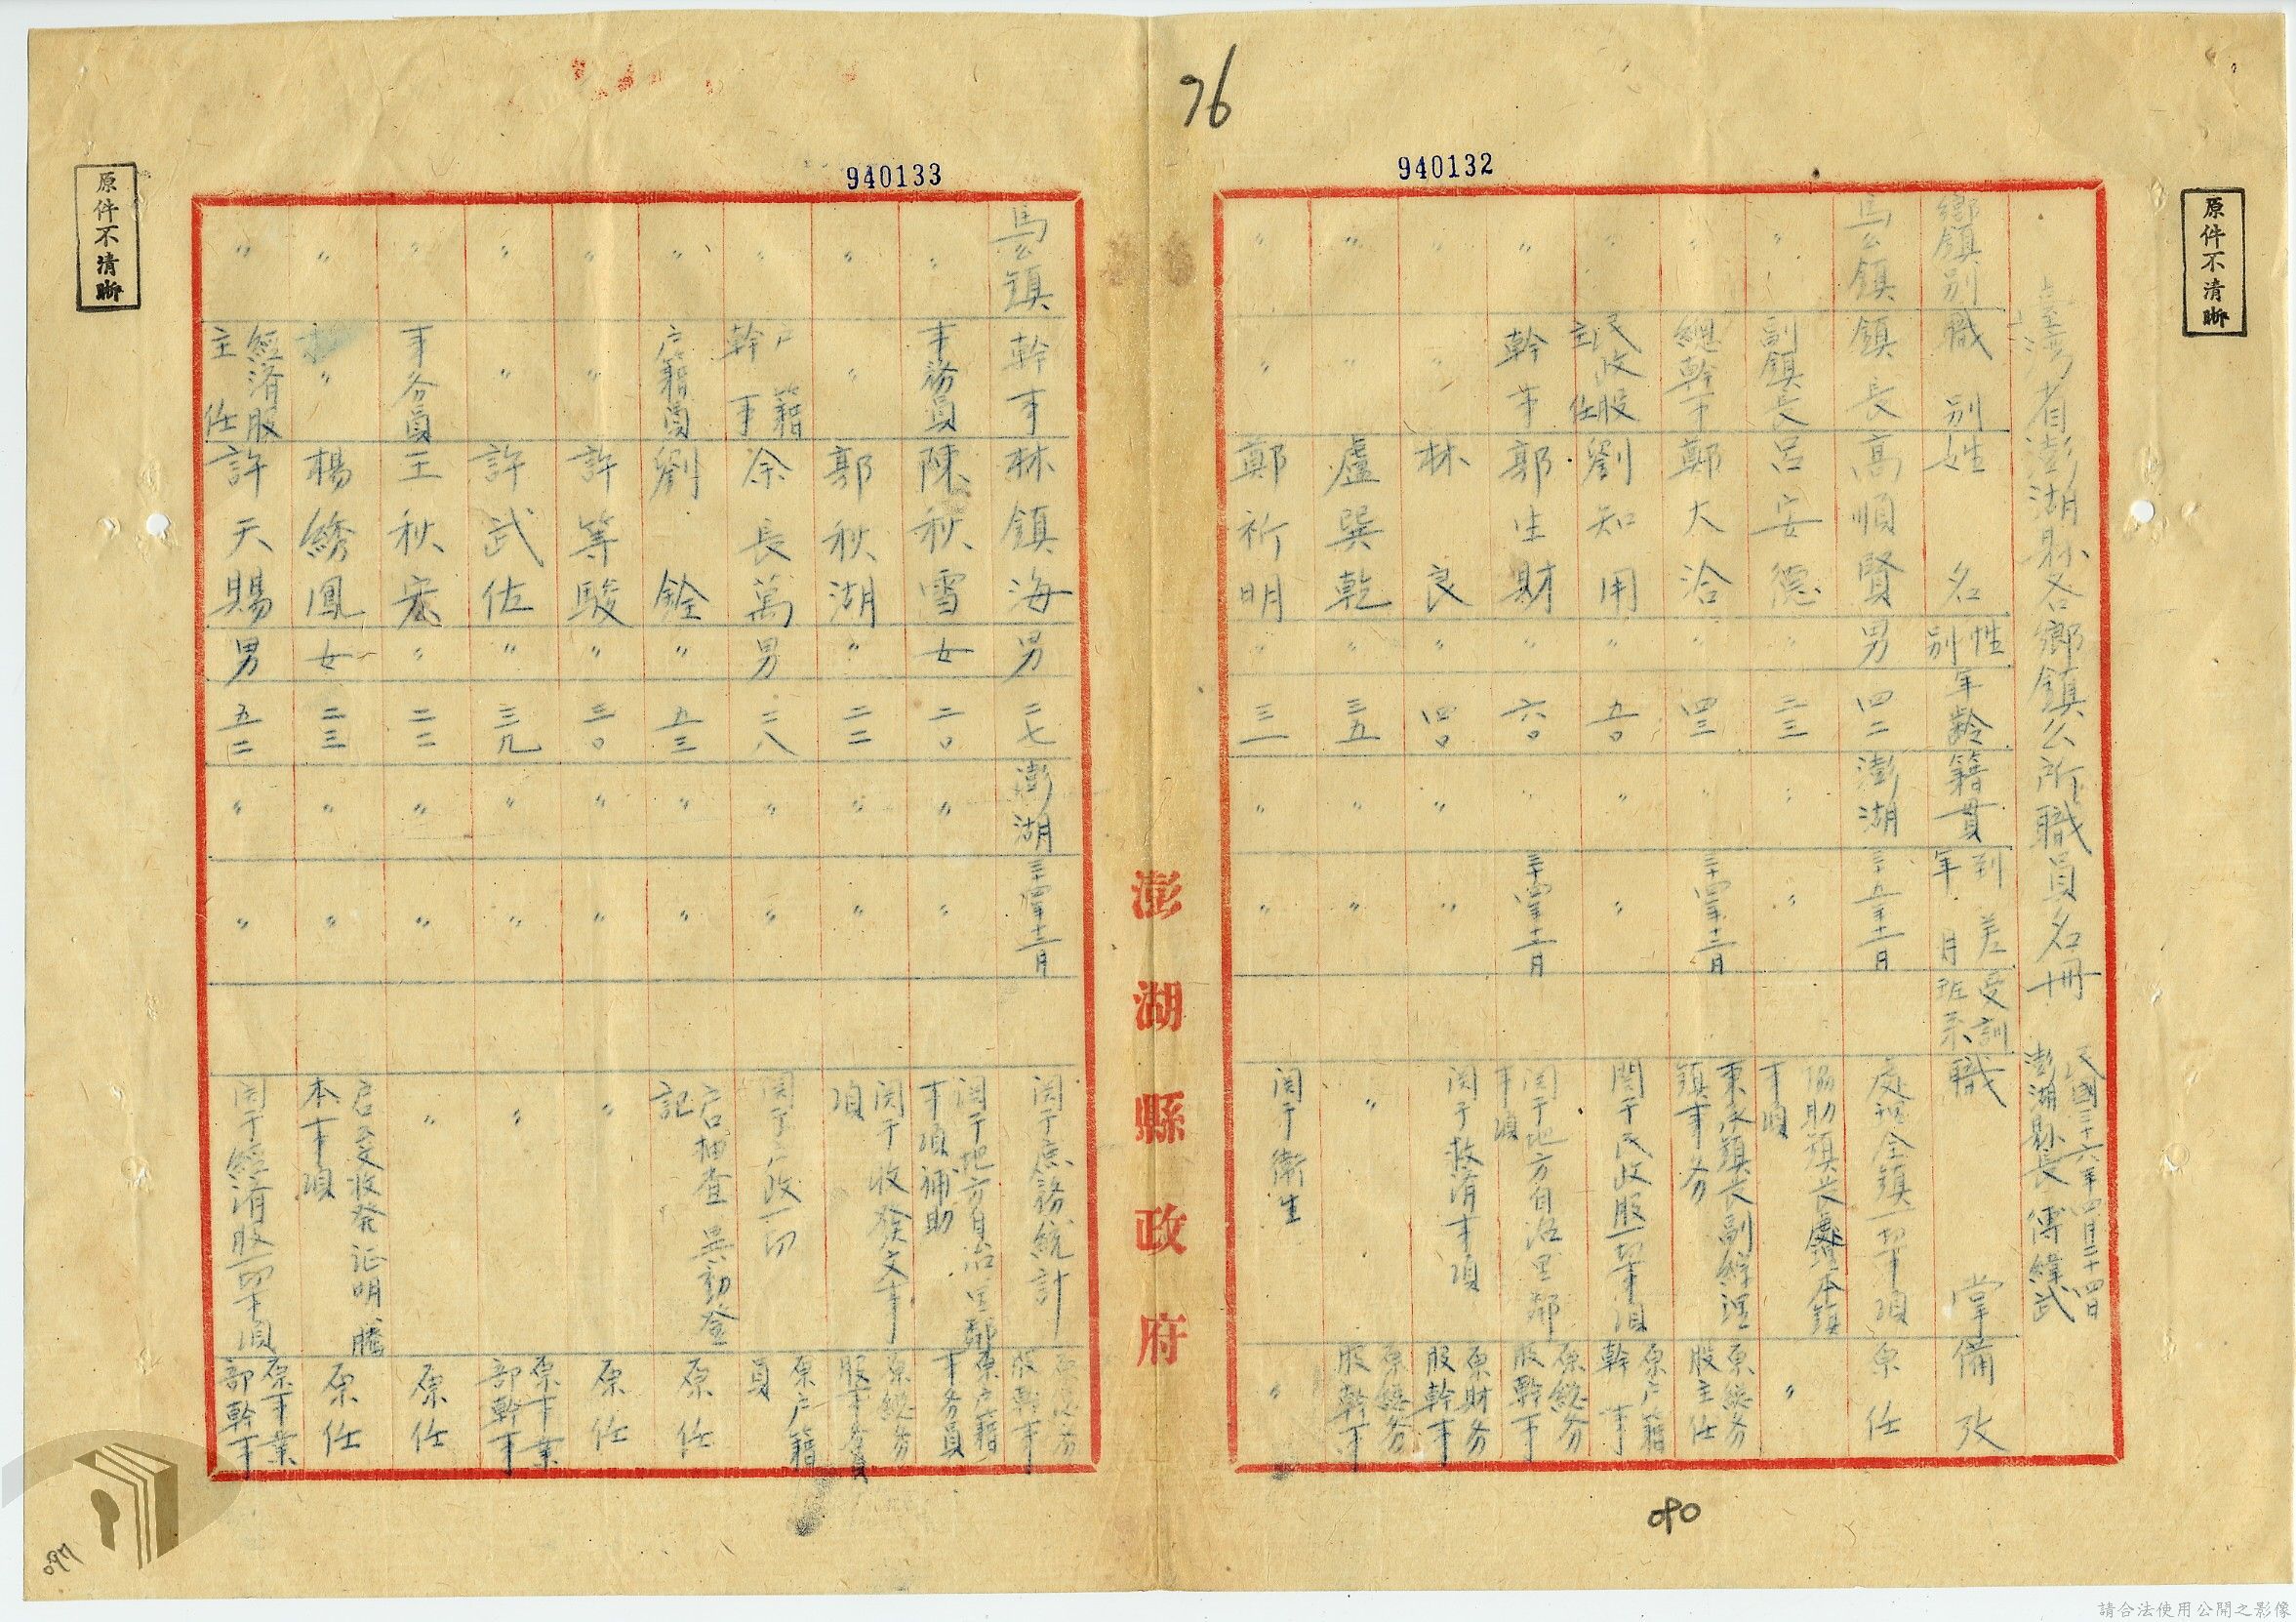 76
940132
原件不清晰
臺灣省澎湖縣各鄉鎮公所職員名冊
民國三十六年四月二十四日
澎湖縣長傅緯武
鄉鎮別 職別 姓名 性別 年齡 籍貫 到差年月 受訓班系 職掌 備攷
馬公鎮 鎮長 高順賢 男 四二 澎湖 三五年十二月 處理全鎮一切事項 原任
〃 副鎮長 呂安德 〃 三三 〃 〃 協助鎮長處理本鎮事項 〃
〃 總幹事 鄭大洽 〃 四三 〃 三十四年十二月 秉承鎮長副鎮長 鎮事务 原總务股主任
〃 民政股主任 劉知用 〃 五〇 〃 〃 関于民政股一切事項 原户籍幹事
〃 幹事 郭生財 〃 六〇 〃 三十四年十二月 関于地方自治里鄰事項 原總务股幹事
〃 〃 林良 〃 四〇 〃 〃 関于救済事項 原財务股幹事
〃 〃 盧巽乾 〃 三五 〃 〃 〃 原總务股幹事
〃 〃 鄭祈明 〃 三一 〃 〃 関于衛生 〃
澎湖縣政府
940133
馬公鎮 幹事 林鎮海 男 二七 澎湖 三十四年十二月 関于庶務統計 原總务股幹事
〃 事務員 陳秋雪 女 二〇 〃 〃 関于地方自治里鄰事項補助 原户籍事务員
〃 〃 郭秋湖 〃 二二 〃 〃 関于收發文事項 原總务股事务員
〃 户籍幹事 余長萬 男 二八 〃 〃 関于户政一切 原户籍員
〃 户籍員 劉銓 〃 五三 〃 〃 户口抽查異動登記 原任
〃 〃 許等駿 〃 三〇 〃 〃 〃 原任
〃 〃 許武佐 〃 三九 〃 〃 〃 原事業部幹事
〃 事务員 王秋宏 〃 二二 〃 〃 〃 原任
〃 〃 楊綉鳳 女 二三 〃 〃 收発証明謄本事項 原任
〃 經済股主任 許天賜 男 五二 〃 〃 関于經済股一切事項 原事業部幹事
原件不清晰
請合法使用公開之影像